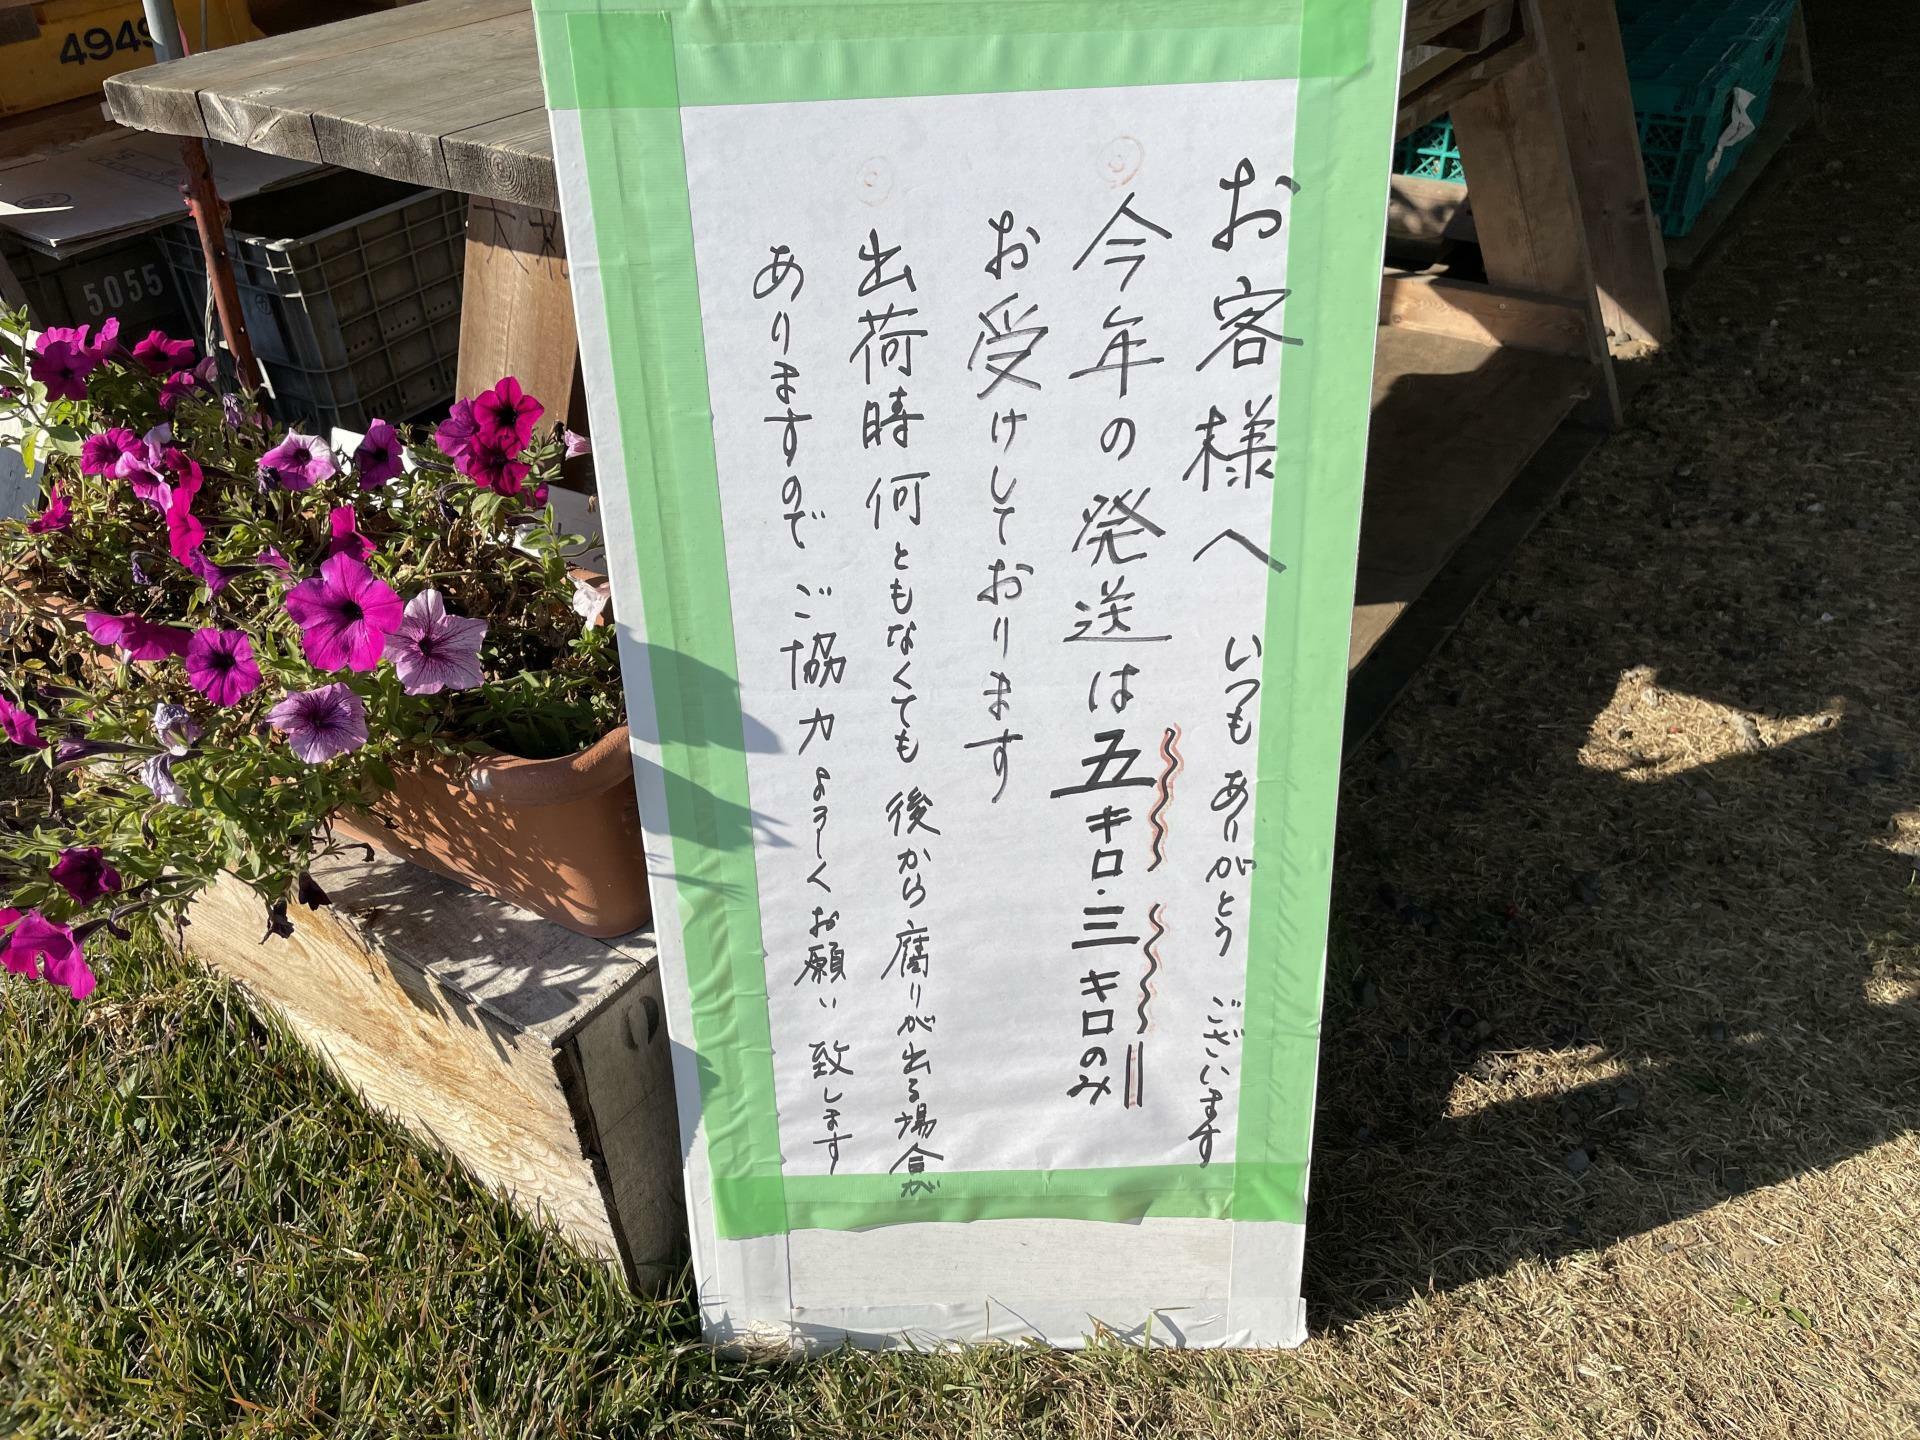 お客様へ いつも ありがとう ございます
◎今年の発送は五キロ・三キロのみ
お受けしております
◎出荷時何ともなくても 後から腐りが出る場合が
ありますので ご協力よろしくお願い致します
4949
5055